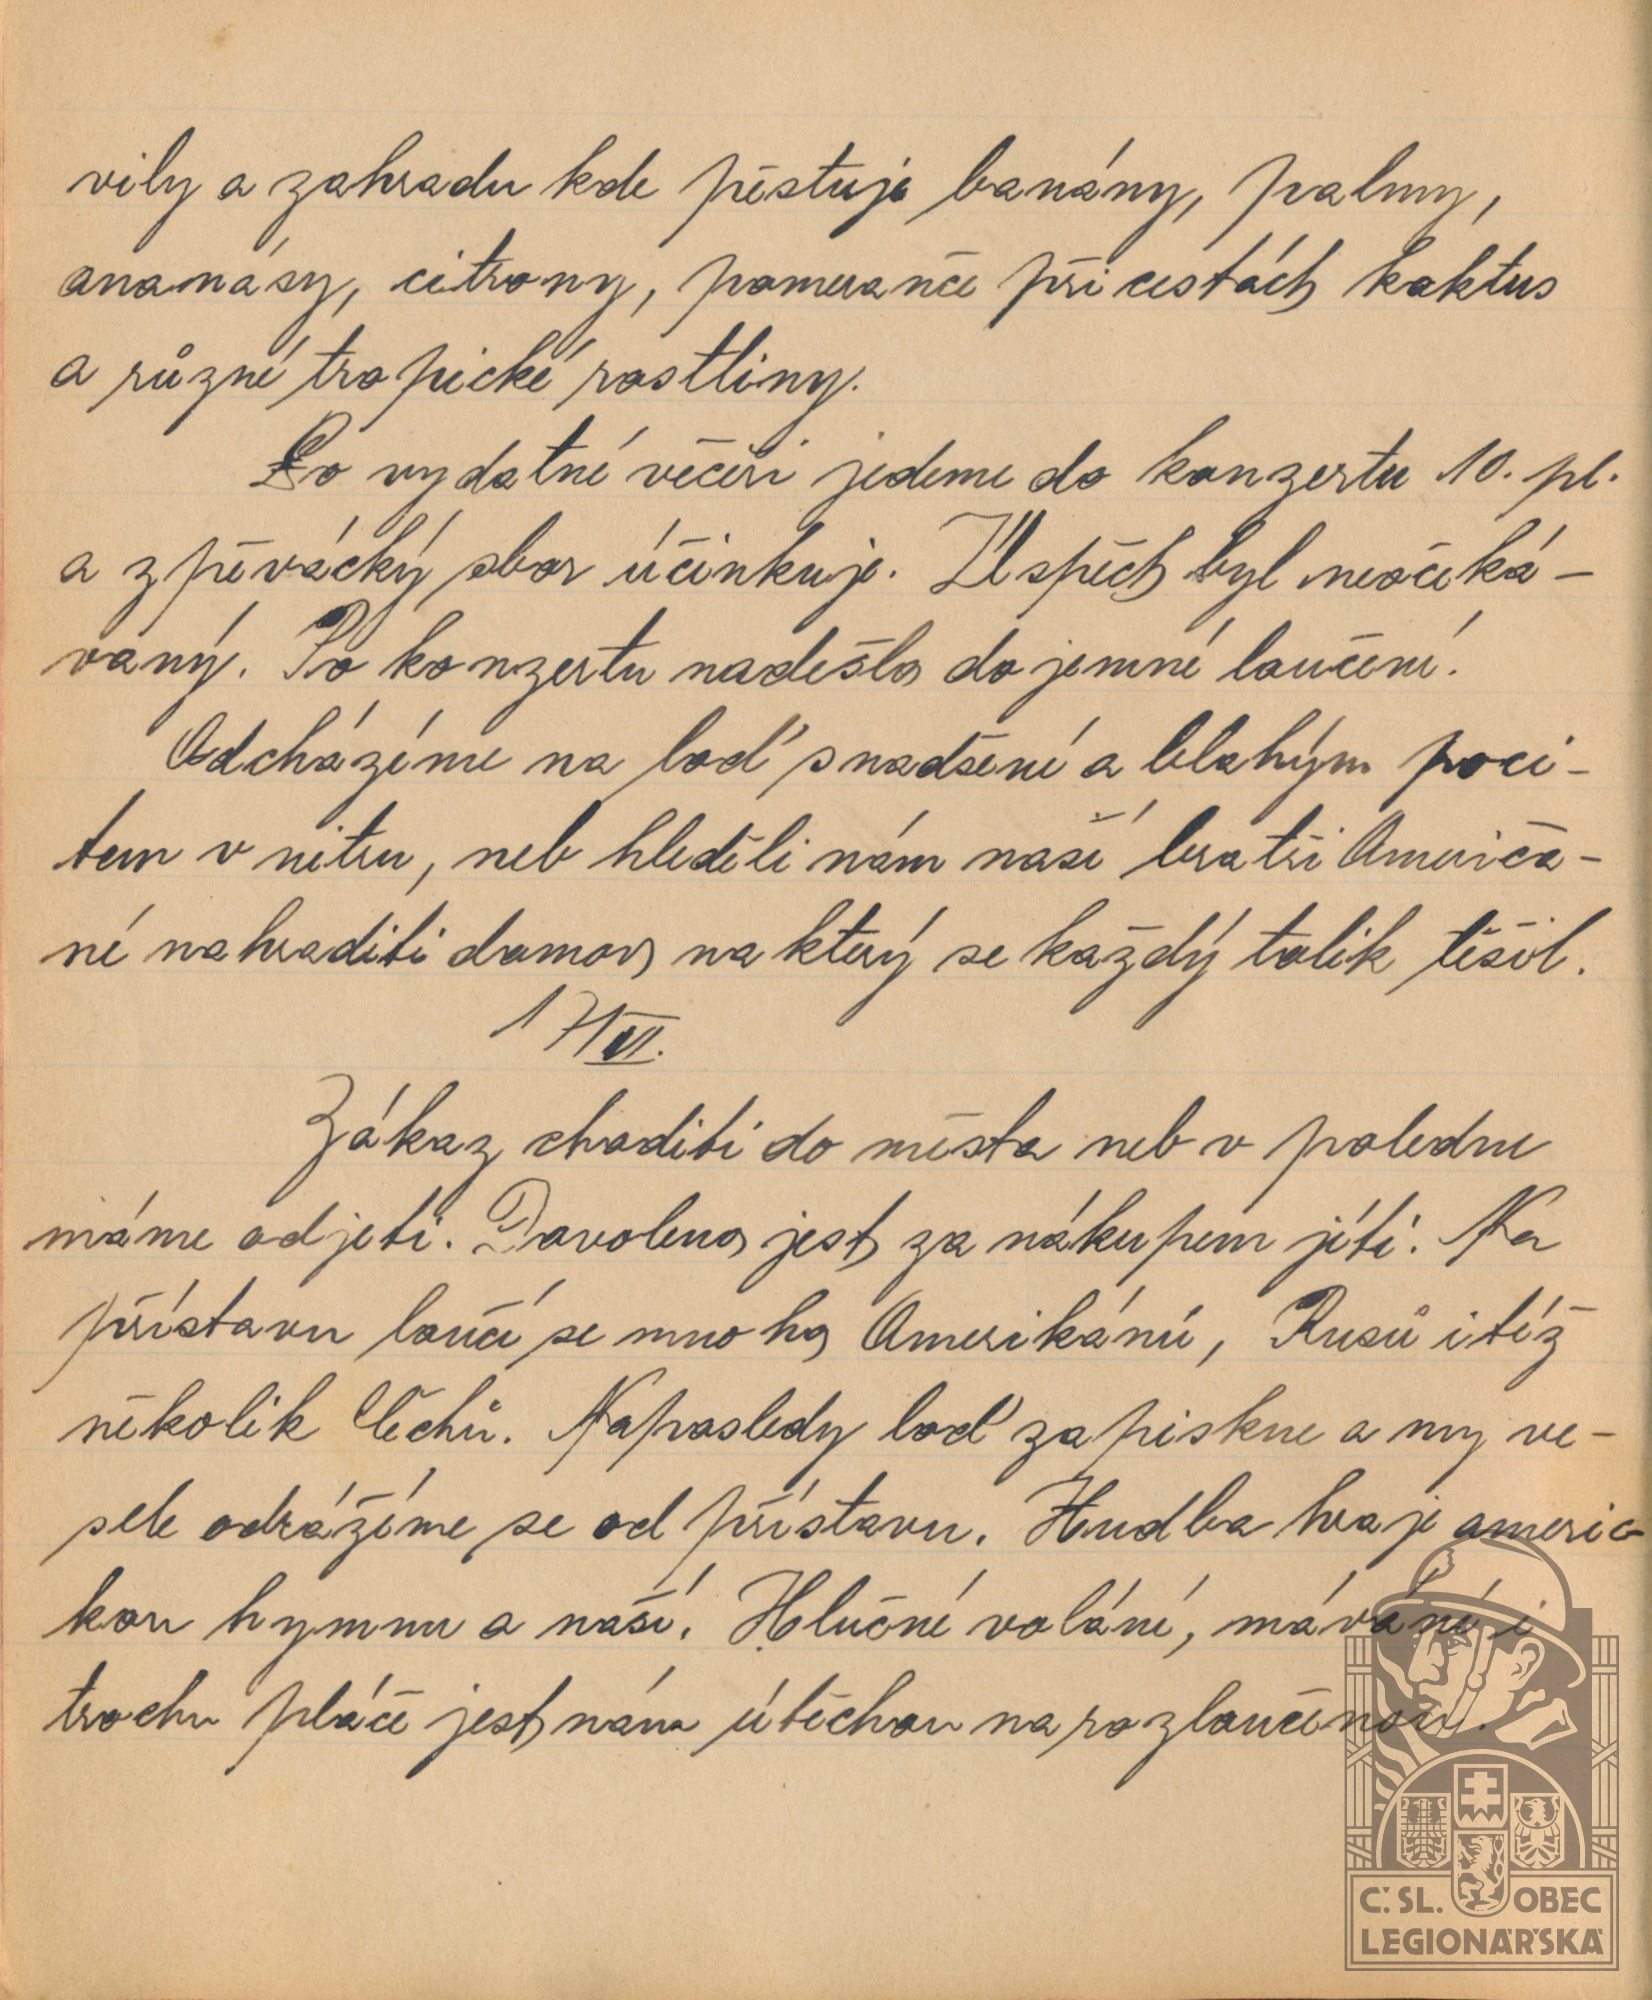 vily a zahradu kde pěstuje banány, palmy,
ananásy, citrony, pomeranče při cestách kaktus
a různé tropické rostliny.
Po vydatné večeři jedeme do konzertu 10. pl.
a zpěvácký sbor účinkuje. Úspěch byl neočeká-
vaný. Po konzertu nadešlo dojemné loučení.
Odcházíme na loď s nadšení a blahým poci-
tem v nitru, neb hleděli nám naší bratři Američa-
né nahraditi domov na který se každý tolik těšil.
17/VI.
Zákaz choditi do města neb v poledne
máme odjeti. Dovoleno jest za nákupem jíti. Na
přístavu loučí se mnoho Amerikánů, Rusů i též
několik Čechů. Naposledy loď zapiskne a my ve-
sele odrážíme se od přístavu. Hudba hraje americ-
kou hymnu a naší. Hlučné volání, mávání i
trochu pláče jest nám útěchou na rozloučenou.
Č. SL. OBEC
LEGIONÁŘSKÁ